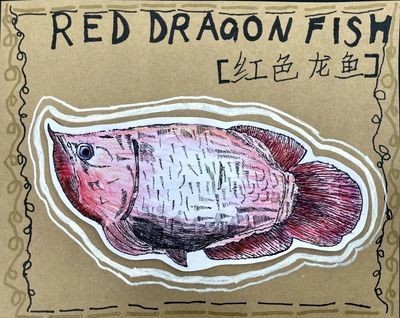 RED DRAGON FISH
[红色龙鱼]